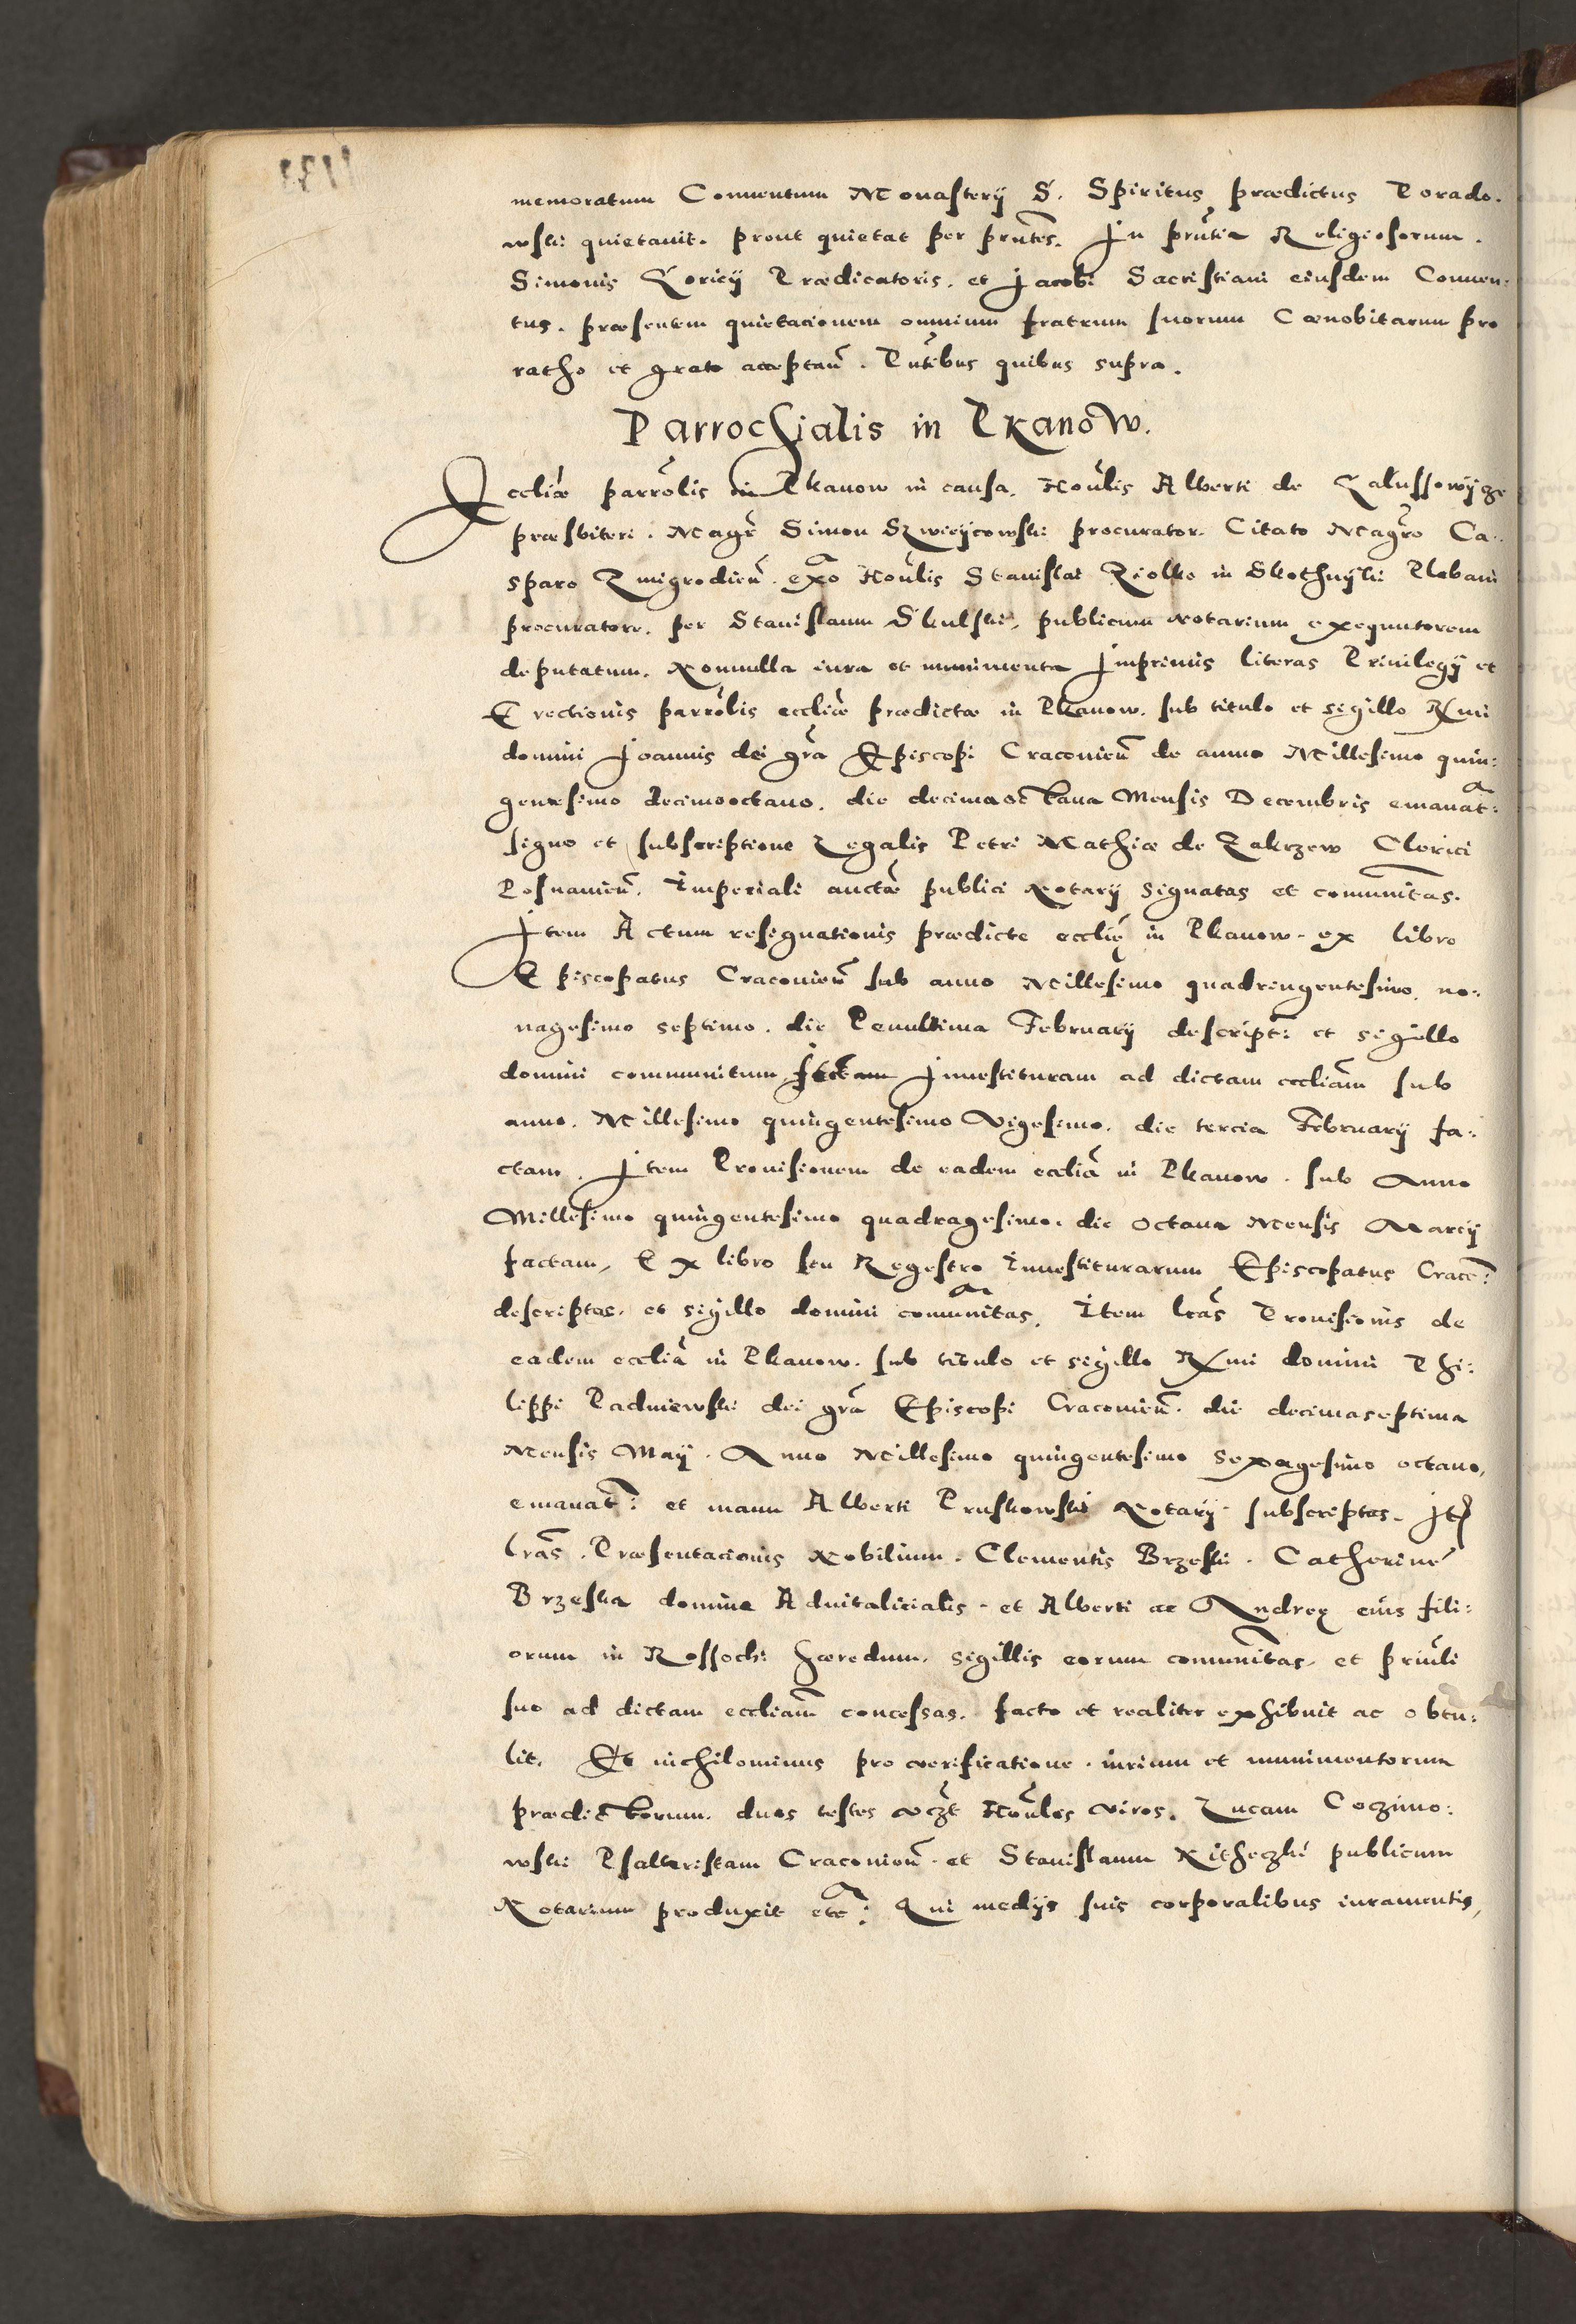 memoratum Conuentum Monasterij S. Spiritus prædictus Porado.
wski quietauit. prout quietat per prntes. In prntia Religiosorum.
Simonis Loricij Prædicatoris. et Jacobi Sacristiani eiusdem Conuen:
tus. præsentem quietacionem omnium fratrum suorum Cœnobitarum pro
ratho et grato acceptan. Pntibus quibus supra.
Parrochialis in Pkanow.
Eccliæ parrolis in Pkanow in causa. Honlis Alberti de
præsbiteri. Magr Simon procurator. Citato Magro Ca:
sparo Zmigrodien. exo Honlis Stanislai Ziolko in Plebani
procuratore. per Stanislaum Skulski, publicum Notarium exequutorem
deputatum. Nonnulla iura et munimenta Imprimis literas Priuilegij et
Erectionis parrolis eccliæ prædictæ in Pkanow. sub titulo et sigillo Rmi
domini Joannis dei gra Episcopi Cracouien de anno Millesimo quin:
gentesimo decimooctauo. die decimaoctaua Mensis Decembris emanat:
signo et subscriptione Regalis Petri Mathiæ de Zakrzew Clerici
Posnanien. Imperiali auctæ publici Notarij signatas et comunitas.
Item Actum resignationis prædicte ecclię in Pkanow. ex libro
Episcopatus Cracouien sub anno Millesimo quadringentesimo. no:
nagesimo septimo. die Penultima February descript: et sigillo
domini communitum. Inuestituram ad dictam eccliam sub
anno. Millesimo quingentesimo Vigesimo. die tercia February fa:
ctam. Item Prouisionem de eadem ecclia in Pkanow. sub Anno
Millesimo quingentesimo quadragesimo. die octaua Mensis Marcij
factam, Ex libro seu Regestro Inuestiturarum Episcopatus Cracen:
descriptas. et sigillo domini comunitas. Item lras Prouisionis de
eadem ecclia in Pkanow. sub titulo et sigillo Rmi domini Phi:
lippi Padniewski dei gra Episcopi Cracouien. die decimaseptima
Mensis Maij. Anno Millesimo quingentesimo sexagesimo octauo,
emanat: et manu Alberti Pruskowski Notarij subscriptas. Ite
lras. Præsentacionis Nobilium. Clementis Brzeski. Catherine
Brzeska domine Aduitalicialis. et Alberti ac Andreę eius fili:
orum in Rossochi hæredum. sigillis eorum comunitas. et priuli
suo ad dictam eccliam concessas. facto et realiter exhibuit ac obtu:
lit. Et nichilominus pro verificatione. iurium et munimentorum
prædictorum. duos testes vczt Honles viros. Lucam Coczimo:
wski Psalteristam Cracouien. et Stanislaum publicum
Notarium produxit etc: Qui medijs suis corporalibus iuramentis,